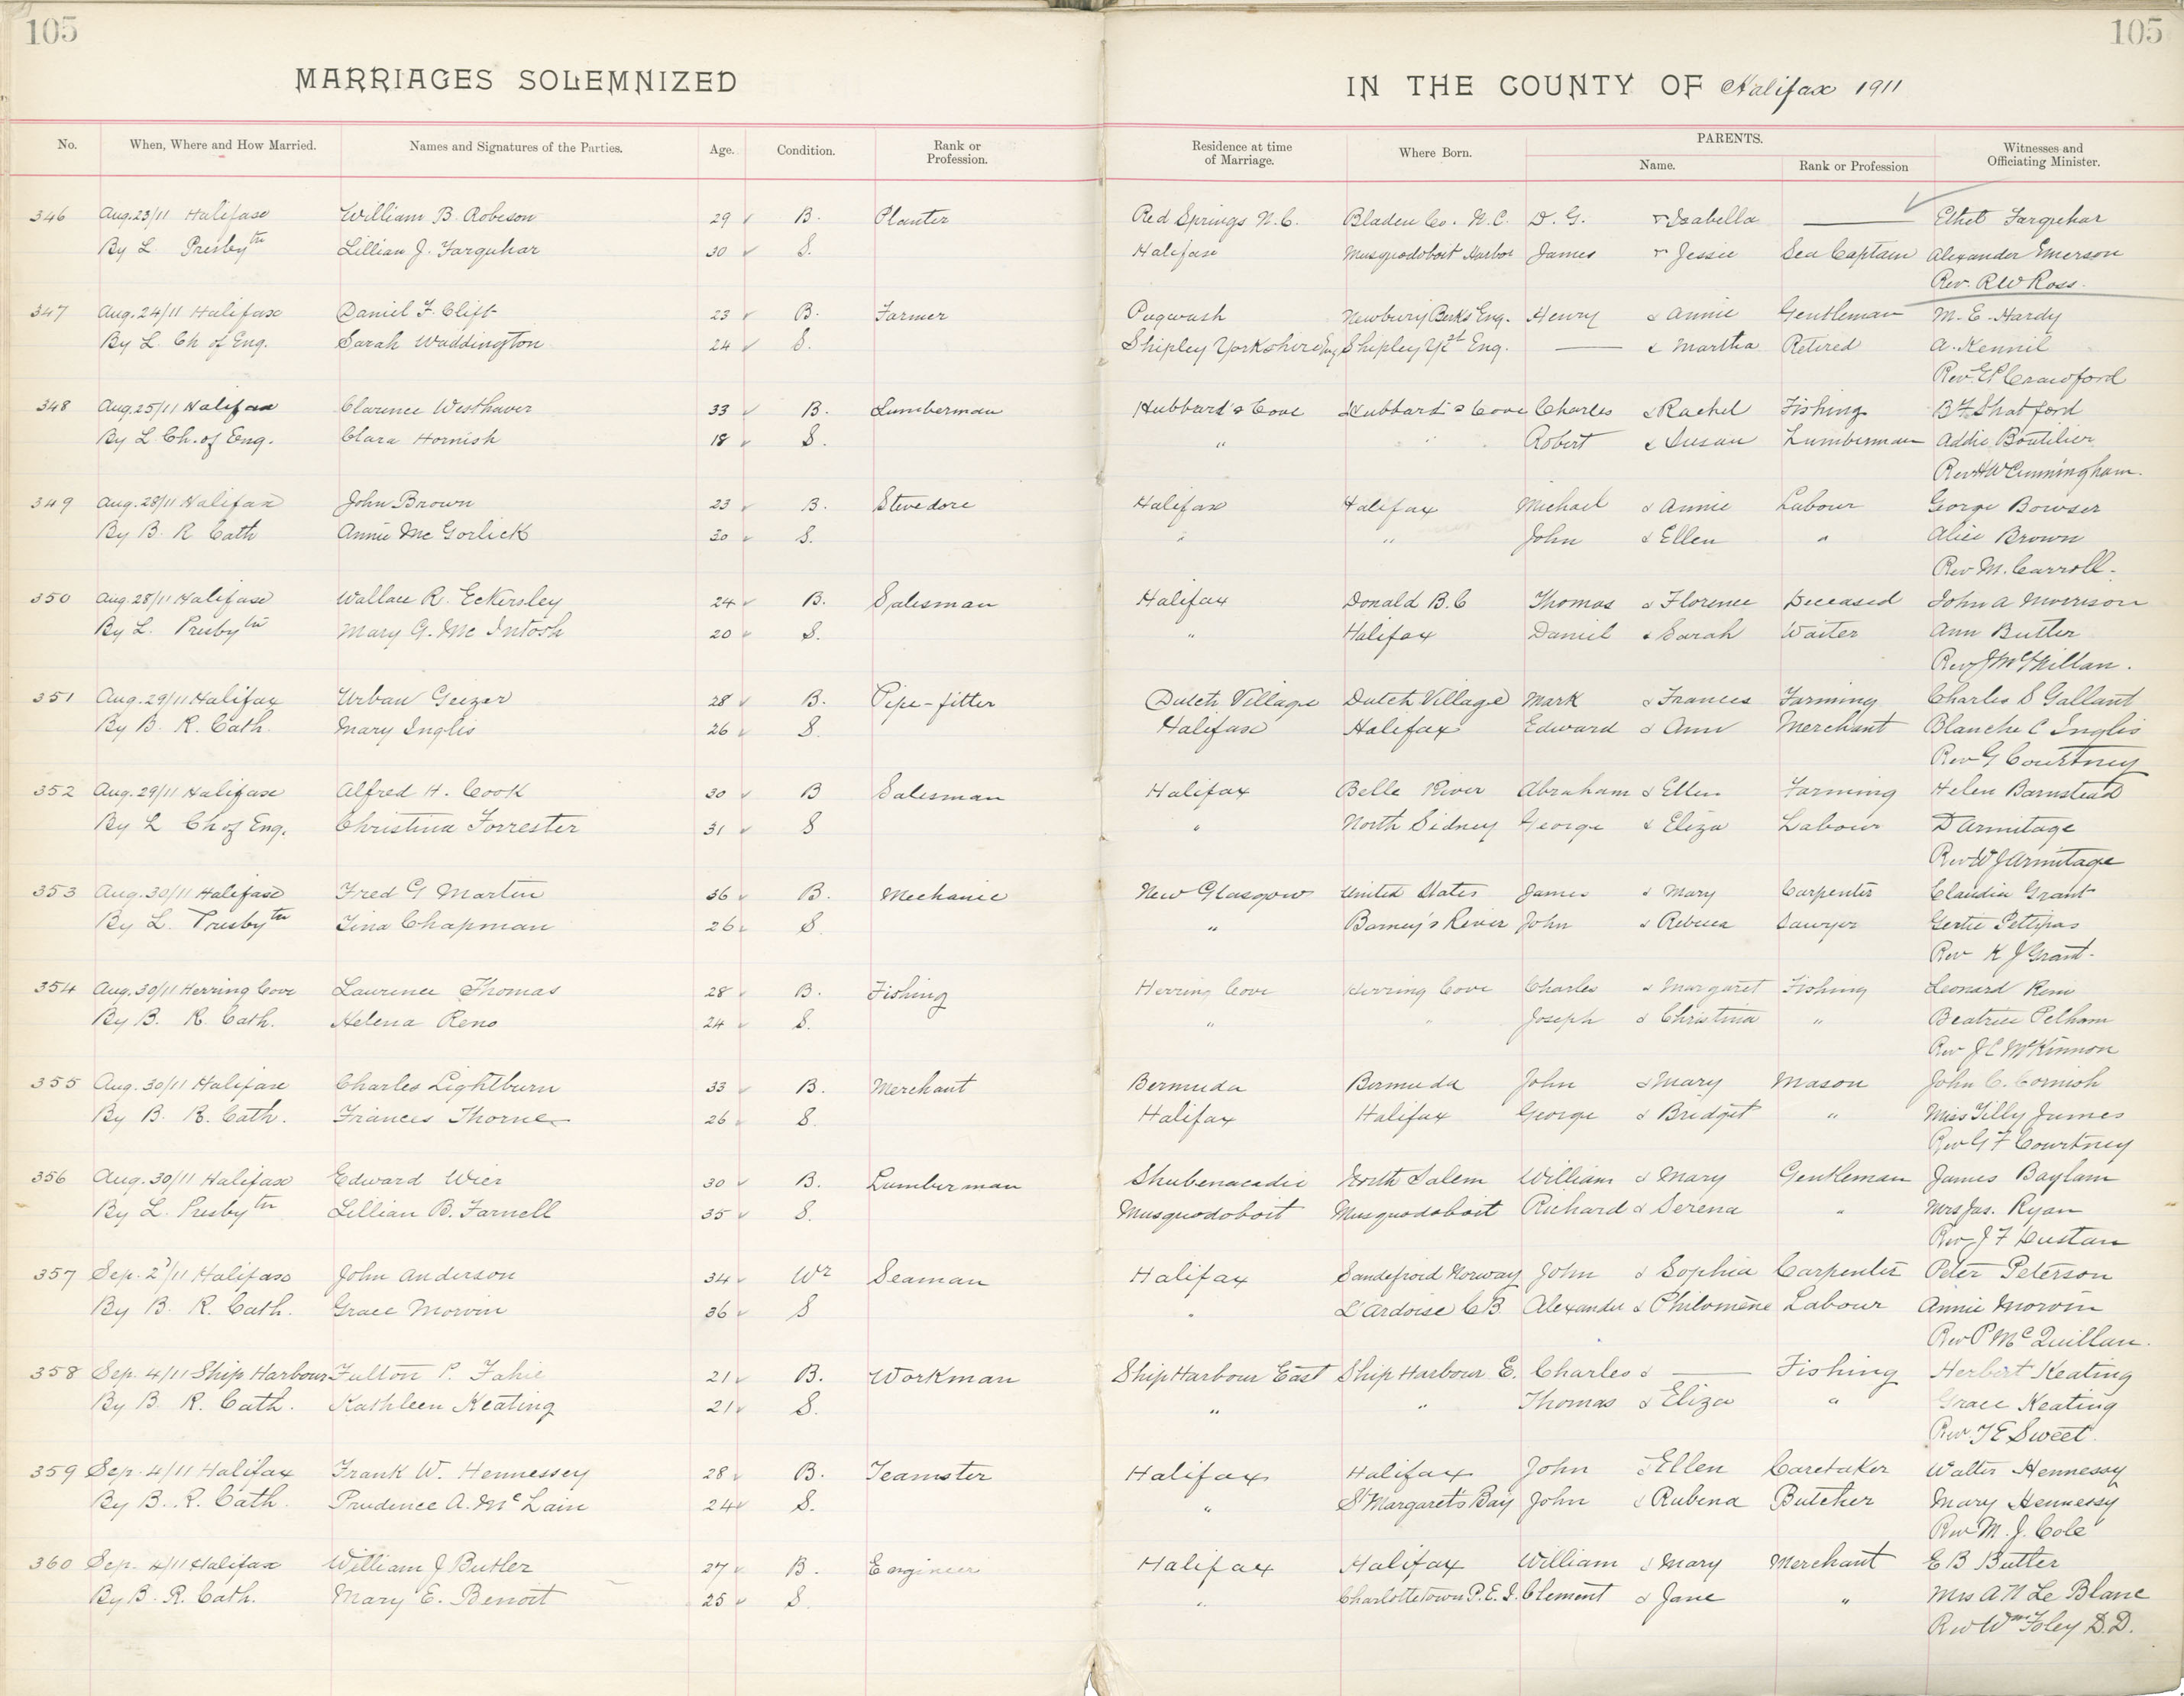 105 105
MARRIAGES SOLEMNIZED IN THE COUNTY OF Halifax 1911
No. When, Where and How Married. Names and Signatures of the Parties. Age. Condition. Rank or Profession. Residence at time of Marriage. Where Born. PARENTS. Name. Rank or Profession Witnesses and Officiating Minister.
346 Aug. 23/11 Halifax William B. Robeson 29 B. Planter Red Springs N.C. Bladen Co. N.C. D. G. & Isabella — Ethel Farquhar
By L Presbytn Lillian J. Farquhar 30 S. Halifax Musquodoboit Harbor James & Jessie Sea Captain Alexander Emerson
Rev. R W Ross.
347 Aug. 24/11 Halifax Daniel F. Clift 23 B. Farmer Pugwash Newbury Berks Eng. Henry & Annie Gentleman M. E. Hardy
By L Ch of Eng. Sarah Waddington 24 S. Shipley Yorkshire Eng Shipley Eng. — & Martha Retired A. Kennil
Rev. Crawford
348 Aug. 25/11 Halifax Clarence Westhaver 33 B. Lumberman Hubbard's Cove Hubbard's Cove Charles & Rachel Fishing B F Shatford
By L Ch. of Eng. Clara Hornish 18 S. " " Robert & Susan Lumberman Addie Boutilier
Rev H W Cunningham.
349 Aug. 28/11 Halifax John Brown 23 B. Stevedore Halifax Halifax Michael & Annie Labour George Bowser
By B. R Cath Annie Mc Gorlick 30 S. " " John & Ellen " Alice Brown
Rev M. Carroll.
350 Aug. 28/11 Halifax Wallace R. Eckersley 24 B. Salesman Halifax Donald B.C Thomas & Florence Deceased John A Morrison
By L. Presbytn Mary G. Mc Intosh 20 S. " Halifax Daniel & Sarah Waiter Ann Butler
Rev J McMillan.
351 Aug. 29/11 Halifax Urban Geizer 28 B. Pipe-fitter Dutch Village Dutch Village Mark & Frances Farming Charles S Gallant
By B. R. Cath. Mary Inglis 26 S. Halifax Halifax Edward & Ann Merchant Blanche C Inglis
Rev G Courtney
352 Aug. 29/11 Halifax Alfred H. Cook 30 B Salesman Halifax Belle River Abraham & Ellen Farming Helen Barnstead
By L Ch of Eng. Christina Forrester 31 S " North Sidney George & Eliza Labour D Armitage
Rev W J Armitage
353 Aug. 30/11 Halifax Fred G Martin 36 B. Mechanic New Glasgow United States James & Mary Carpenter Claudia Grant
By L. Presbytn Tina Chapman 26 S. " Barney's River John & Rebecca Sawyer Gertie Pettipas
Rev K J Grant.
354 Aug. 30/11 Herring Cove Laurence Thomas 28 B. Fishing Herring Cove Herring Cove Charles & Margaret Fishing Leonard Reno
By B. R. Cath. Helena Reno 24 S. " " Joseph & Christina " Beatrice Pelham
Rev J C McKinnon
355 Aug. 30/11 Halifax Charles Lightburn 33 B. Merchant Bermuda Bermuda John & Mary Mason John C. Cornish
By B. R. Cath. Frances Thorne 26 S. Halifax Halifax George & Bridget " Miss Tilly James
Rev G F Courtney
356 Aug. 30/11 Halifax Edward Wier 30 B. Lumberman Shubenacadie North Salem William & Mary Gentleman James Baylam
By L. Presbytn Lillian B. Farnell 35 S. Musquodoboit Musquodoboit Richard & Serena " Mrs Jas. Ryan
Rev J F Dustan
357 Sep. 2/11 Halifax John Anderson 34 Wr Seaman Halifax Sandefroid Norway John & Sophia Carpenter Peter Peterson
By B. R. Cath. Grace Morvin 36 S " L'Ardoise C B. Alexander & Philomène Labour Annie Morvin
Rev P McQuillan.
358 Sep. 4/11 Ship Harbour Fulton P. Fahie 21 B. Workman Ship Harbour East Ship Harbour E. Charles & — Fishing Herbert Keating
By B. R. Cath. Kathleen Keating 21 S. " " Thomas & Eliza " Grace Keating
Rev T E Sweet.
359 Sep. 4/11 Halifax Frank W. Hennessey 28 B. Teamster Halifax Halifax John & Ellen Caretaker Walter Hennessy
By B. R. Cath. Prudence A. Mc Lain 24 S. " St Margaret's Bay John & Rubena Butcher Mary Hennessy
Rev M. J. Cole
360 Sep. 4/11 Halifax William J Butler 27 B. Engineer Halifax Halifax William & Mary Merchant E B Butler
By B. R. Cath. Mary E. Benoit 25 S. " Charlottetown P.E.I. Clement & Jane " Mrs A N Le Blanc
Rev Wm Foley D.D.